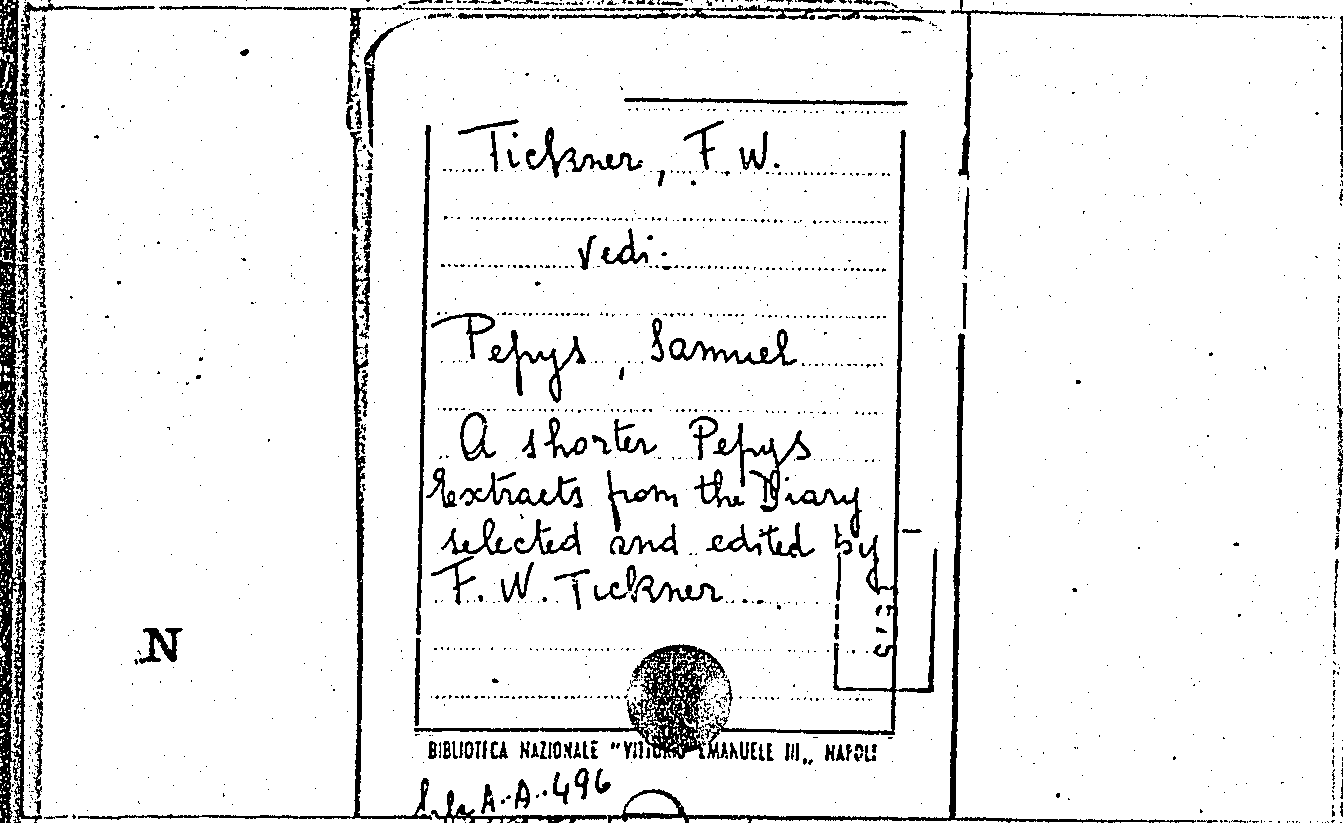 Tickner, F. W.
vedi:
Pepys, Samuel
A shorter Pepys
Extracts from the Diary
selected and edited by
F. W. Tickner ...
N
BIBLIOTECA NAZIONALE "VITTORIO EMANUELE III„ NAPOLI
A.A.496